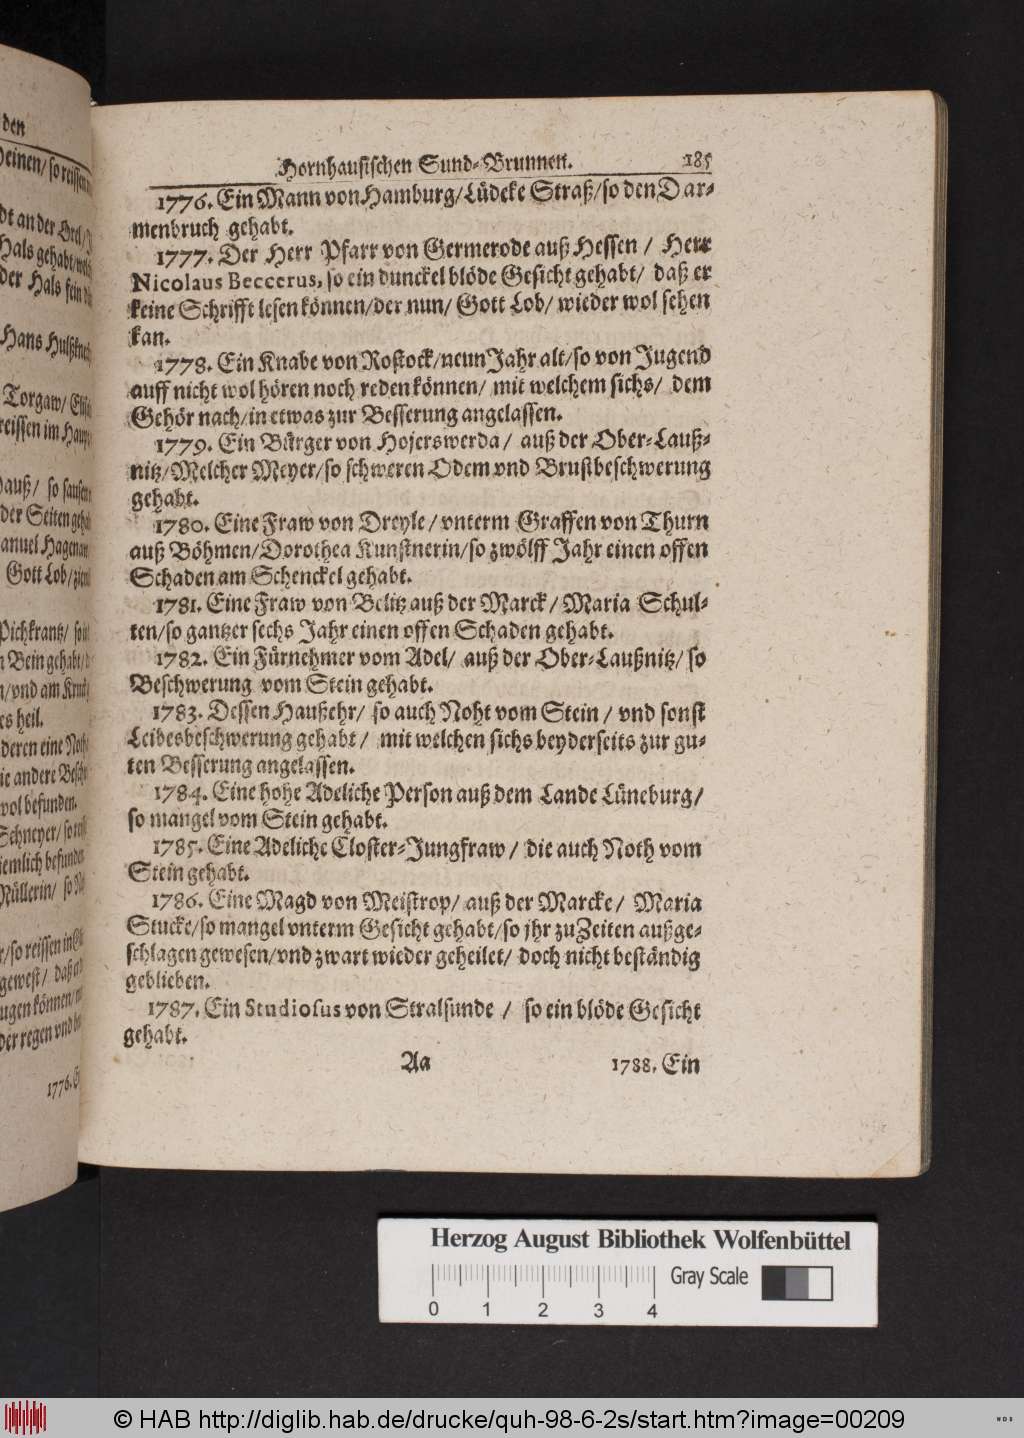 Hornhausischen Sund-Brunnen. 185
1776. Ein Mann von Hamburg/Lüdeke Straß/so den Dar-
menbruch gehabt.
1777. Der Herr Pfarr von Germerode auß Hessen / Herr
Nicolaus Beccerus, so ein dunckel blöde Gesicht gehabt/ daß er
keine Schrifft lesen können/der nun/ Gott Lob/ wieder wol sehen
kan.
1778. Ein Knabe von Rostock/neun Jahr alt/so von Jugend
auff nicht wol hören noch reden können/ mit welchem sichs/ dem
Gehör nach/in etwas zur Besserung angelassen.
1779. Ein Bürger von Hojerswerda / auß der Ober-Lauß-
nitz/Melcher Meyer/so schweren Odem vnd Brustbeschwerung
gehabt.
1780. Eine Fraw von Dreyle/vnterm Graffen von Thurn
auß Böhmen/Dorothea Kunstnerin/so zwölff Jahr einen offen
Schaden am Schenckel gehabt.
1781. Eine Fraw von Belitz auß der Marck/ Maria Schul-
ten/so gantzer sechs Jahr einen offen Schaden gehabt.
1782. Ein Fürnehmer vom Adel/ auß der Ober-Laußnitz/so
Beschwerung vom Stein gehabt.
1783. Dessen Haußehr/ so auch Noht vom Stein / vnd sonst
Leibesbeschwerung gehabt/ mit welchen sichs beyderseits zur gu-
ten Besserung angelassen.
1784. Eine hohe Adeliche Person auß dem Lande Lüneburg/
so mangel vom Stein gehabt.
1785. Eine Adeliche Closter-Jungfraw / die auch Noth vom
Stein gehabt.
1786. Eine Magd von Meistrop/ auß der Marcke/ Maria
Stucke/so mangel vnterm Gesicht gehabt/so jhr zu Zeiten außge-
schlagen gewesen/vnd zwart wieder geheilet/ doch nicht beständig
geblieben.
1787. Ein Studiosus von Stralsunde / so ein blöde Gesicht
gehabt.
Aa 1788. Ein
den
an der
Hals gehabt
der Hals fein
Hans
Torgaw/
reissen im
so sausen
der Seiten
Gott Lob/
Bein gehabt
vnd am
es heil.
deren eine
andere
wol befunden.
Schneyer/
Müllerin/ so
so reissen in
gewest/ daß
können/
der regen vnd
1776.
Herzog August Bibliothek Wolfenbüttel
Gray Scale
0 1 2 3 4
© HAB http://diglib.hab.de/drucke/quh-98-6-2s/start.htm?image=00209